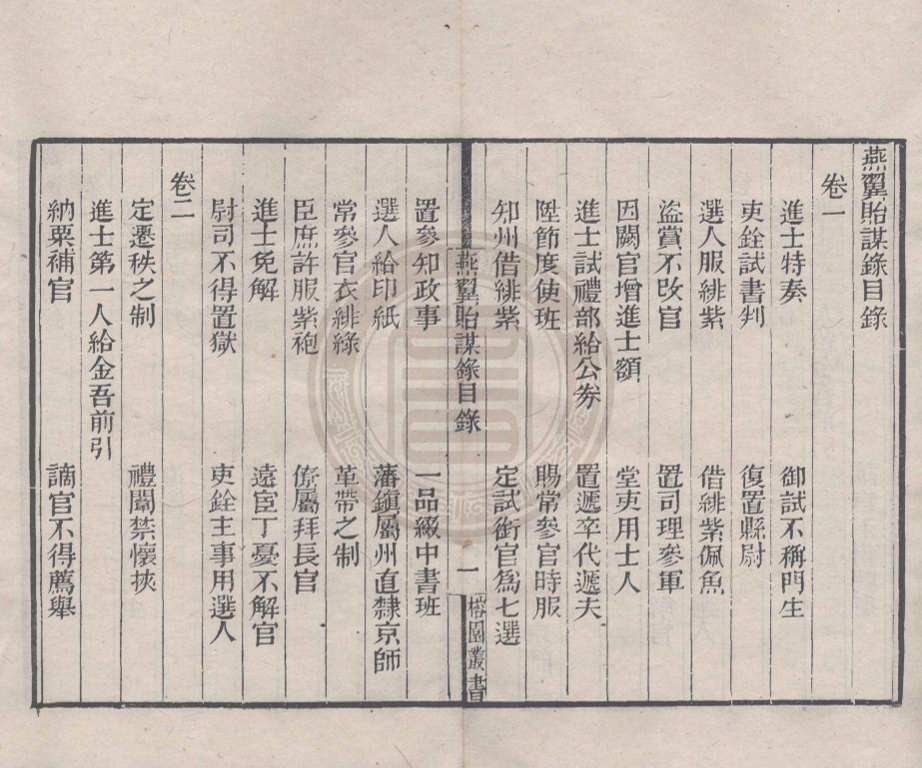 燕翼貽謀錄目錄
卷一
進士特奏　御試不稱門生
吏銓試書判　復置縣尉
選人服緋紫　借緋紫佩魚
盜賞不改官　置司理參軍
因闕官增進士額　堂吏用士人
進士試禮部給公劵　置遞卒代遞夫
陞節度使班　賜常參官時服
知州借緋紫　定試銜官爲七選
燕翼貽謀錄目錄　一　榕園叢書
置參知政事　一品綴中書班
選人給印紙　藩鎭屬州直隸京師
常參官衣緋綠　革帶之制
臣庶許服紫袍　僚屬拜長官
進士免解　遠宦丁憂不解官
尉司不得置獄　吏銓主事用選人
卷二
定遷秩之制　禮闈禁懷挾
進士第一人給金吾前引
納粟補官　謫官不得薦舉